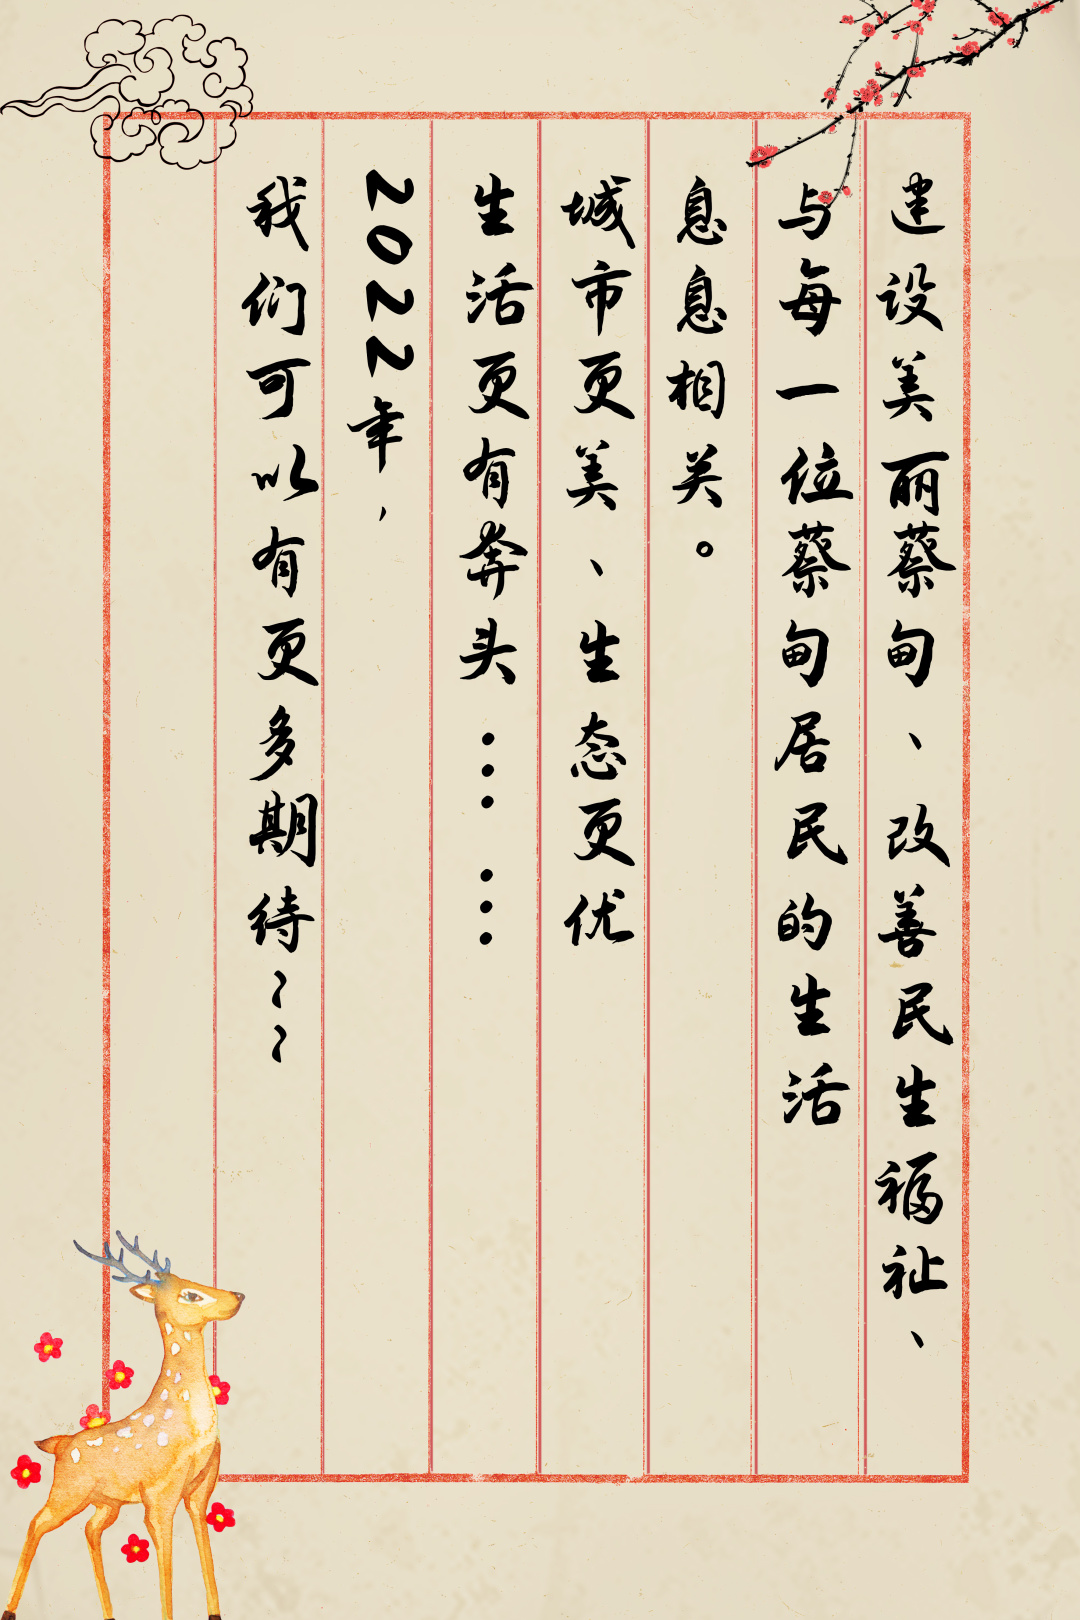 建设美丽蔡甸、改善民生福祉、
与每一位蔡甸居民的生活
息息相关。
城市更美、生态更优
生活更有奔头……
2022年，
我们可以有更多期待~~